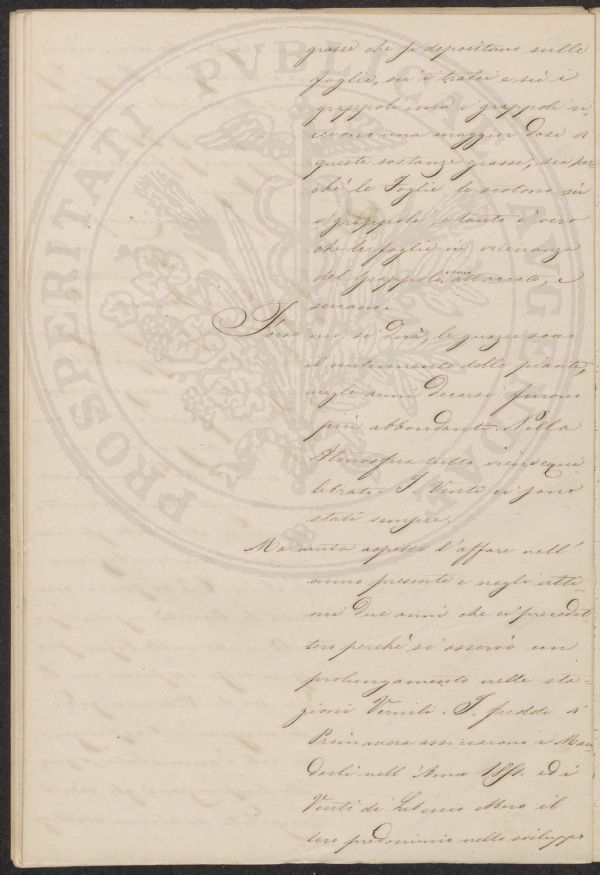 grasse che si depositano sulle
foglie, sù i tralci e sù i
grappoli, ma i grappoli ri
cevono una maggior dose di
queste sostanze grasse, sia per
chè le Foglie le scotono sù
i grappoli, e tanto è vero
che le foglie in vicinanza
del Grappolo sono attaccato, e
seccano.
Forse mi si dirà, le guazze sono
il nutrimento delle piante,
negli anni decorsi furono
più abbondanti. Nella
Atmosfera tutto viene equi
librato. I Venti ci sono
stati sempre.
Ma muta aspetto l'affare nell'
anno presente e negli ulti-
mi due anni che ci precedet
tero perchè si osservò un
prolungamento nelle sta-
gioni Vernili. I freddi di
Primavera assiccarono i Man
dorli nell'Anno 1851. ed i
Venti di Libeccio ebbero il
loro predominio nello sviluppo
PROSPERITATI PVBLICAE AVGENDAE